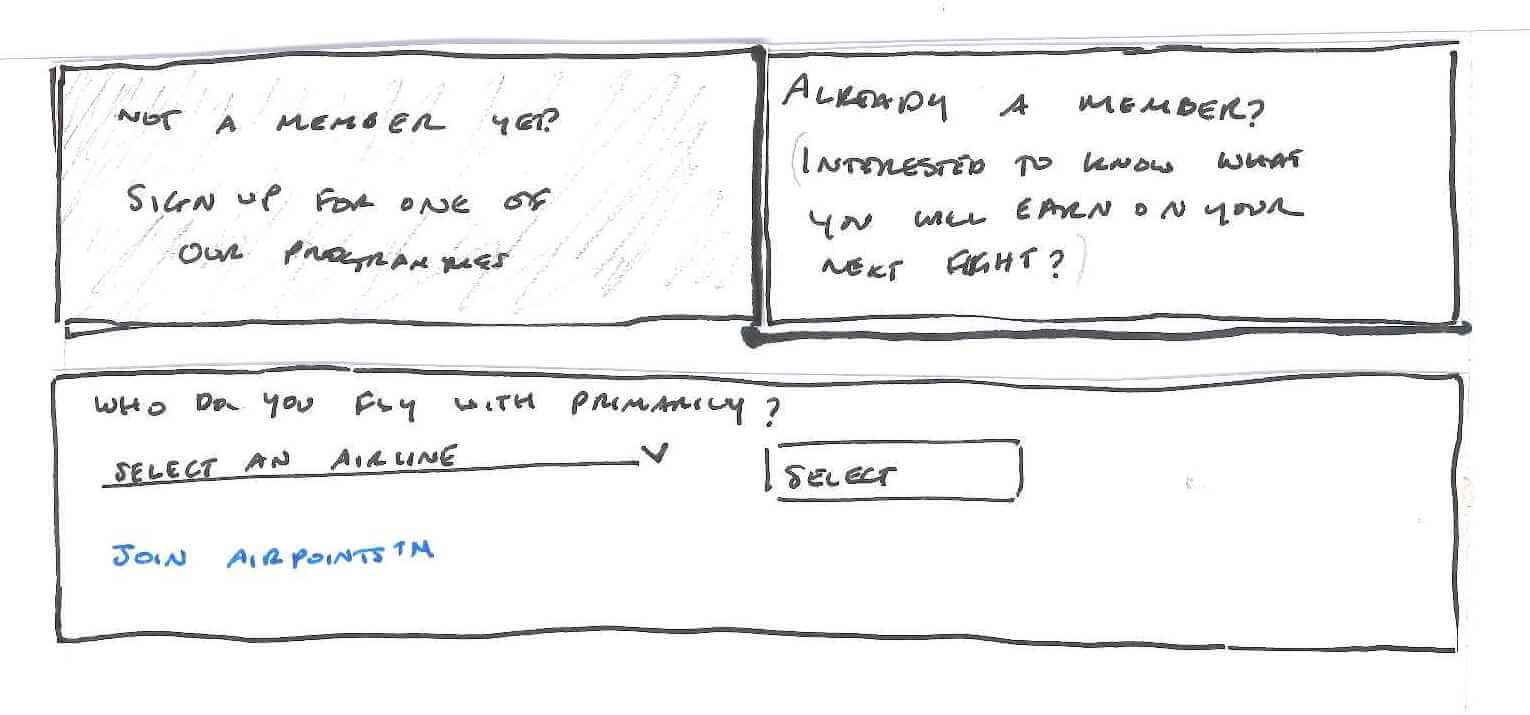 NOT A MEMBER YET?
SIGN UP FOR ONE OF
OUR PROGRAMMES
ALREADY A MEMBER?
(INTERESTED TO KNOW WHAT
YOU WILL EARN ON YOUR
NEXT FLIGHT?)
WHO DO YOU FLY WITH PRIMARILY?
SELECT AN AIRLINE
SELECT
JOIN AIRPOINTS™